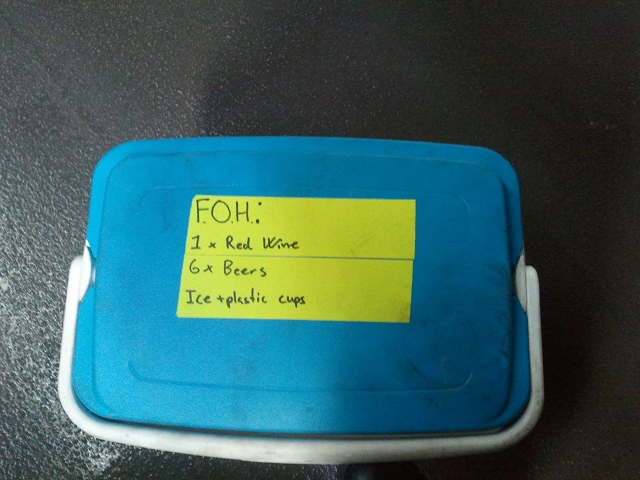 F.O.H.:
1 x Red Wine
6 x Beers
Ice + plastic cups